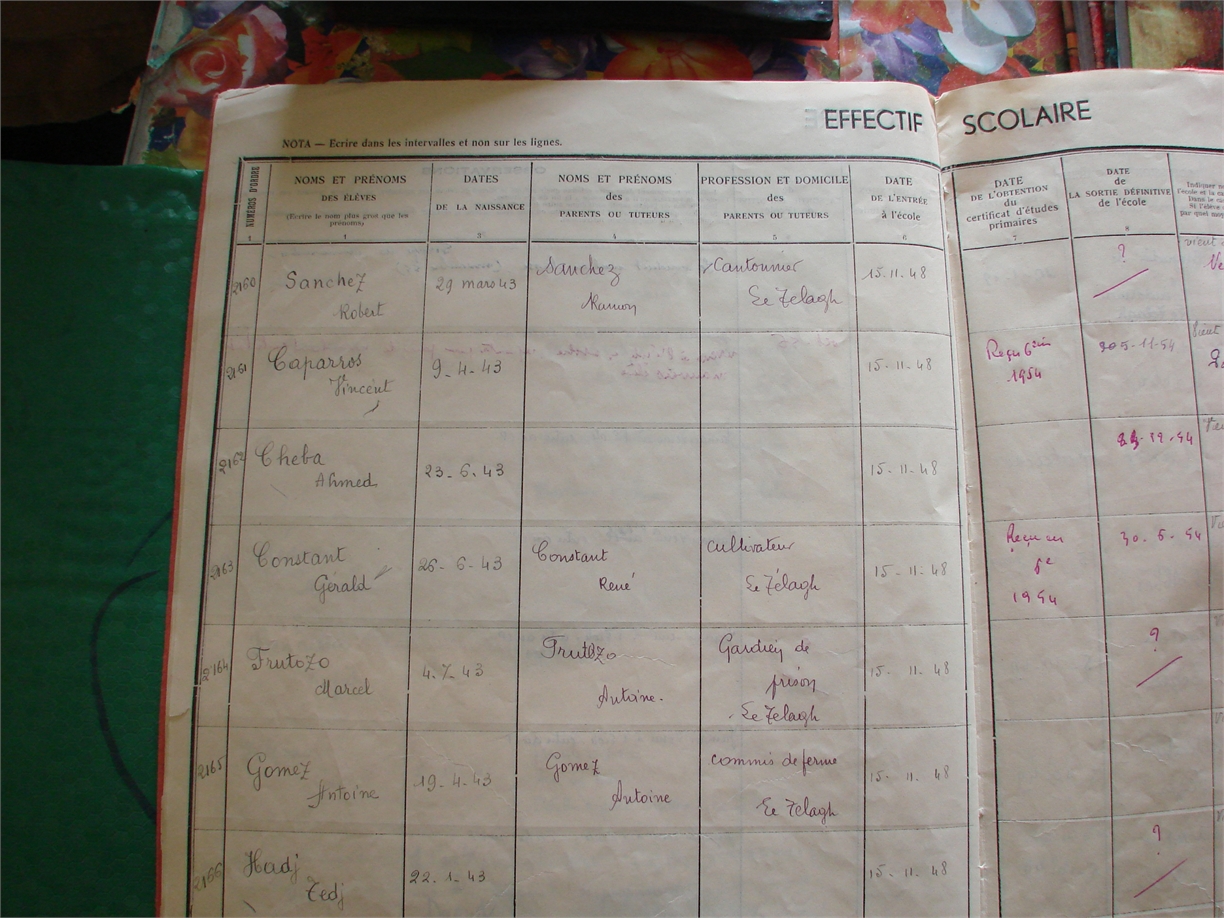 EFFECTIF SCOLAIRE
NOTA — Ecrire dans les intervalles et non sur les lignes.
NUMÉROS D'ORDRE
1
NOMS ET PRÉNOMS
DES ÉLÈVES
(Ecrire le nom plus gros que les
prénoms.)
DATES
DE LA NAISSANCE
3
NOMS ET PRÉNOMS
des
PARENTS OU TUTEURS
4
PROFESSION ET DOMICILE
des
PARENTS OU TUTEURS
5
DATE
DE L'ENTRÉE
à l'école
6
DATE
DE L'OBTENTION
du
certificat d'études
primaires
7
DATE
de
LA SORTIE DÉFINITIVE
de l'école
8
Indiquer
2160
Sanchez
Robert
29 mars 43
Sanchez
Ramon
Cantonnier
Le Telagh
15.11.48
?
vient
2161
Caparros
Vincent
9-4-43
15-11-48
Reçu 6ème
1954
5-11-54
2162
Cheba
Ahmed
23-6.43
15-11-48
2163
Constant
Gérald
26-6-43
Constant
René
cultivateur
Le Télagh
15-11-48
Reçu en
6e
1954
30.6-54
2164
Frutozo
Marcel
4.7.43
Frutozo
Antoine.
Gardien de
prison
Le Telagh
15-11.48
?
2165
Gomez
Antoine
19.4-43
Gomez
Antoine
commis de ferme
Le Telagh
15-11.48
2166
Hadj
Tedj
22.1.43
15-11.48
?